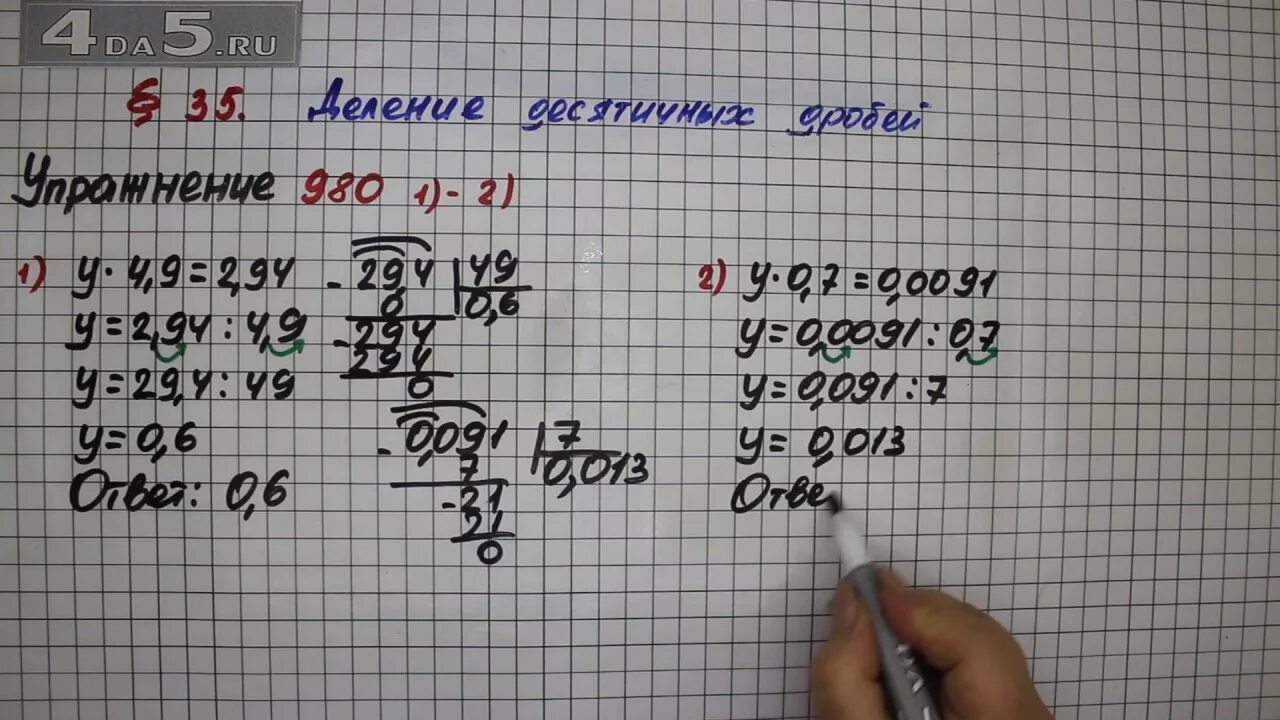 4DA5.RU
§ 35. Деление десятичных дробей
Упражнение 980 1)-2)
1) y · 4,9 = 2,94
y = 2,94 : 4,9
y = 29,4 : 49
y = 0,6
Ответ: 0,6
- 294 49
0 0,6
- 294
294
0
- 0,091 7
7 0,013
- 21
21
0
2) y · 0,7 = 0,0091
y = 0,0091 : 0,7
y = 0,091 : 7
y = 0,013
Отве